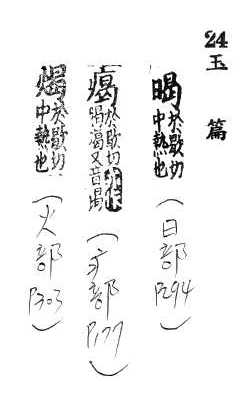 24
玉篇
暍 於歇切中熱也 (日部 P294)
𤸎 於歇切亦作暍又音曷 (疒部 P.177)
㷎 於歇切中熱也 (火部 P303)